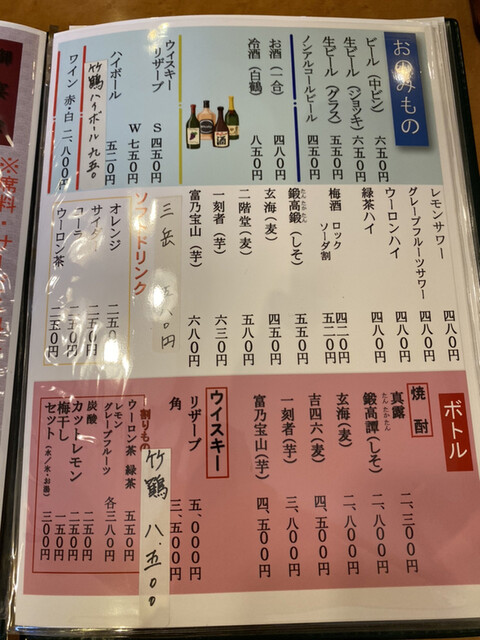 おのみもの
ビール（中ビン） 六五〇円
生ビール（ジョッキ） 六五〇円
生ビール（グラス） 五五〇円
ノンアルコールビール 四五〇円
お酒（一合） 四八〇円
冷酒（白鶴） 八五〇円
ウイスキー
リザーブ S 四五〇円
W 七五〇円
ハイボール 五二〇円
竹鶴ハイボール 九五〇
ワイン 赤・白 二、八〇〇円
レモンサワー 四八〇円
グレープフルーツサワー 四八〇円
ウーロンハイ 四八〇円
緑茶ハイ 四八〇円
梅酒 ロック 四二〇円
ソーダ割 五二〇円
たんたかたん
鍛高鍛（しそ） 四五〇円
玄海（麦） 四五〇円
二階堂（麦） 五八〇円
一刻者（芋） 六三〇円
富乃宝山（芋） 六八〇円
三岳 五八〇円
ソフトドリンク
オレンジ 二五〇円
サイダー 二五〇円
コーラ 二五〇円
ウーロン茶 二五〇円
ボトル
焼酎
真露 二、三〇〇円
たんたかたん
鍛高譚（しそ） 二、八〇〇円
玄海（麦） 二、八〇〇円
吉四六（麦） 五、五〇〇円
一刻者（芋） 三、八〇〇円
富乃宝山（芋） 四、五〇〇円
ウイスキー
リザーブ 五、〇〇〇円
角 三、五〇〇円
竹鶴 八.五〇〇
割りもの
ウーロン茶 緑茶 五五〇円
レモン
グレープフルーツ 各三八〇円
炭酸 二五〇円
カットレモン 二五〇円
梅干し 一五〇円
セット（水／氷・お湯） 三〇〇円
※席料・サー